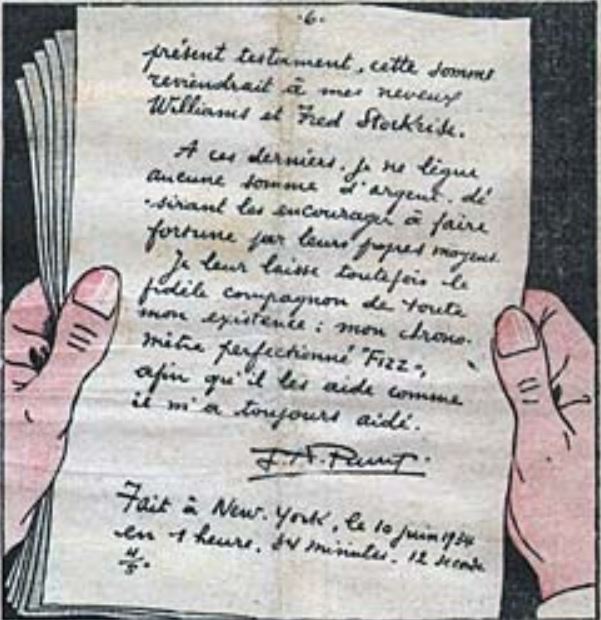 ·6·
présent testament, cette somme
reviendrait à mes neveux
Williams et Fred Stockrise.
A ces derniers, je ne lègue
aucune somme d'argent, dé
-sirant les encourager à faire
fortune par leurs propres moyens
Je leur laisse toutefois le
fidèle compagnon de toute
mon existence : mon chrono-
mètre perfectionné "Fizz",
afin qu'il les aide comme
il m'a toujours aidé.
Fait à New-York, le 10 juin 1934
en 1 heure, 54 minutes, 12 seconde
4/5.